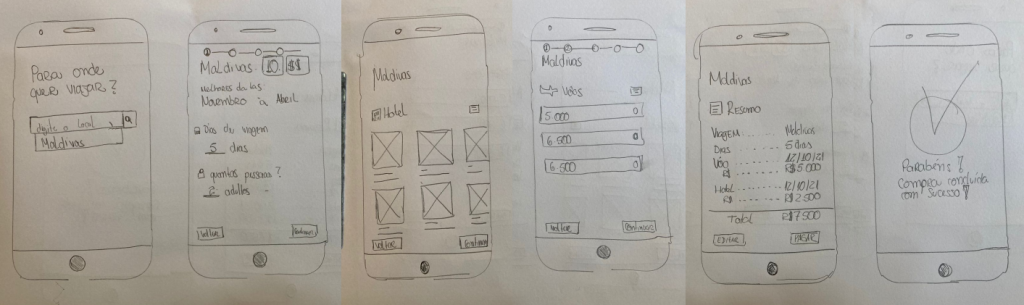 Para onde
quer viajar?
digite o local
Maldivas
Maldivas 10 $$
melhores datas
Novembro a Abril
Dias de viagem
5 dias
quantas pessoas?
2 adultos
Voltar
Continuar
Maldivas
Hotel
Voltar
Continuar
Maldivas
Vôos
5 000
6 500
6 500
Voltar
Continuar
Maldivas
Resumo
Viagem ...... Maldivas
Dias ...... 5 dias
Vôo ...... 12/10/21
R$ ...... R$5 000
Hotel ...... 12/10/21
R$ ...... R$2 500
Total R$7 500
Editar
Pagar
Parabéns!
Compra concluída
com sucesso!